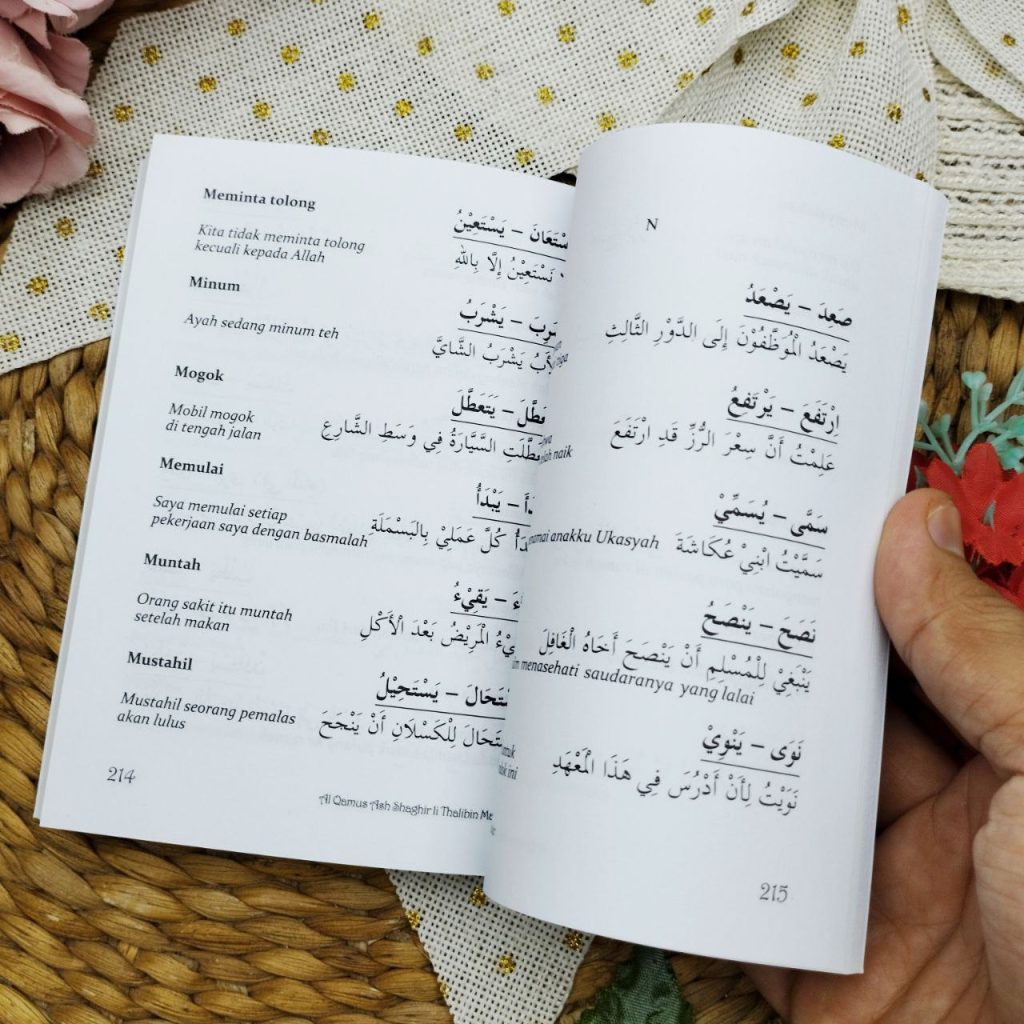 Meminta tolong
يَسْتَعِيْنُ
Kita tidak meminta tolong
kecuali kepada Allah
نَسْتَعِيْنُ إِلَّا بِاللهِ
Minum
– يَشْرَبُ
Ayah sedang minum teh
يَشْرَبُ الشَّايَّ
Mogok
– يَتَعَطَّلَ
Mobil mogok
di tengah jalan
السَّيَّارَةُ فِي وَسَطِ الشَّارِعِ
Memulai
– يَبْدَأُ
Saya memulai setiap
pekerjaan saya dengan basmalah
كُلَّ عَمَلِيْ بِالْبَسْمَلَةِ
Muntah
– يَقِيْءُ
Orang sakit itu muntah
setelah makan
الْمَرِيْضُ بَعْدَ الْأَكْلِ
Mustahil
– يَسْتَحِيْلُ
Mustahil seorang pemalas
akan lulus
لِلْكَسْلَانِ أَنْ يَنْجَحَ
214
Al Qamus Ash Shaghir li Thalibin
N
صَعِدَ – يَصْعَدُ
يَصْعَدُ الْمُوَظَّفُوْنَ إِلَى الدَّوْرِ الثَّالِثِ
اِرْتَفَعَ – يَرْتَفِعُ
عَلِمْتُ أَنَّ سِعْرَ الرُّزِّ قَدِ ارْتَفَعَ
naik
سَمَّى – يُسَمِّيْ
anakku Ukasyah
سَمَّيْتُ ابْنِيْ عُكَاشَةَ
نَصَحَ – يَنْصَحُ
يَنْبَغِيْ لِلْمُسْلِمِ أَنْ يَنْصَحَ أَخَاهُ الْغَافِلَ
menasehati saudaranya yang lalai
نَوَى – يَنْوِيْ
نَوَيْتُ لِأَنْ أَدْرُسَ فِي هَذَا الْمَعْهَدِ
ini
215